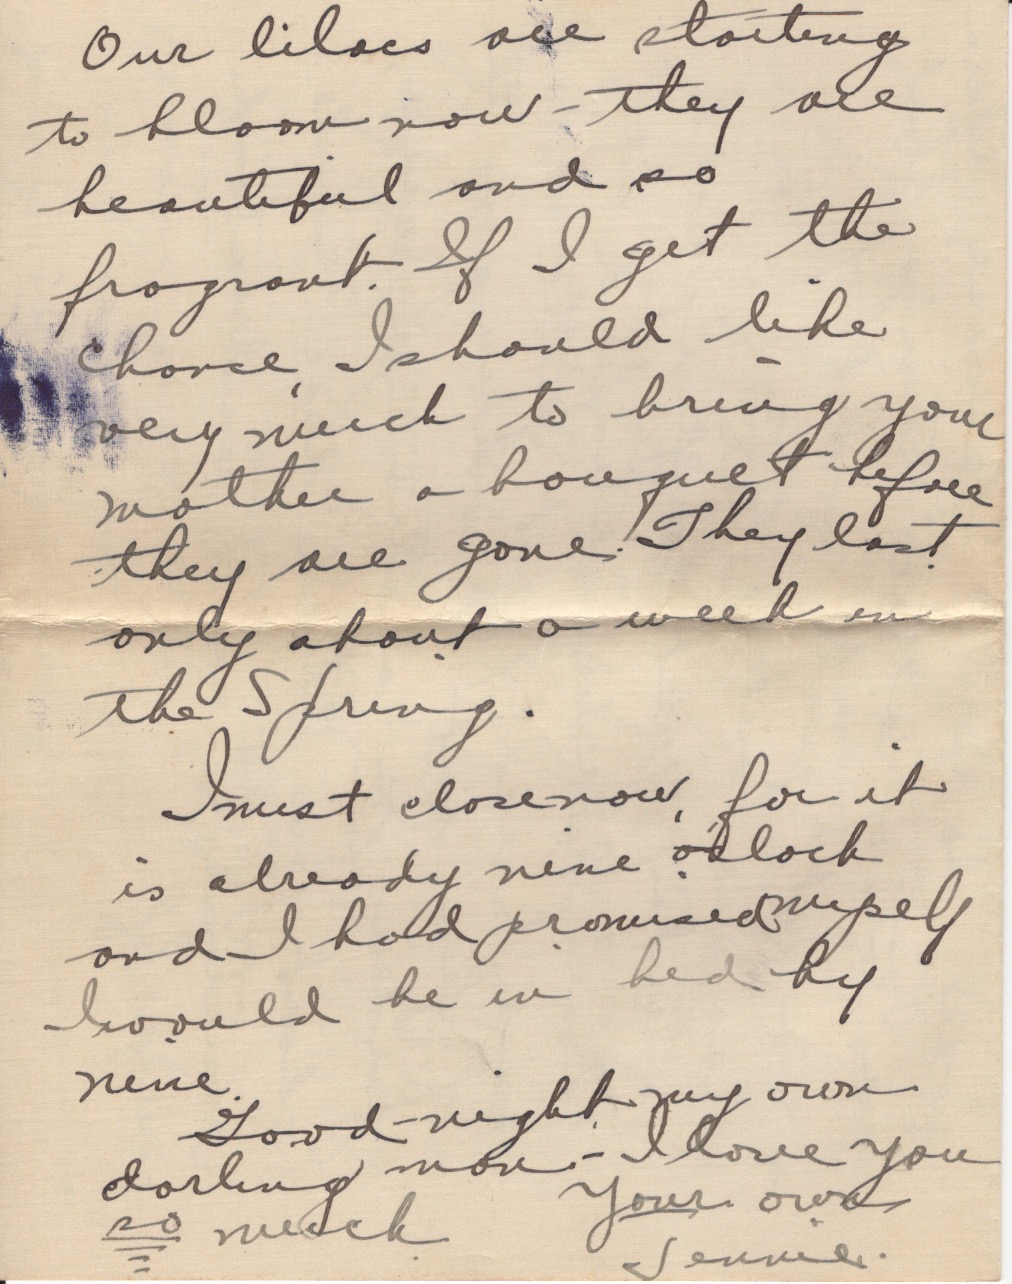 Our lilacs are starting
to bloom now - they are
beautiful and so
fragrant. If I get the
chance, I should like
very much to bring your
mother a bouquet before
they are gone. They last
only about a week in
the Spring.
I must close now, for it
is already nine o'clock
and I had promised myself
I would be in bed by
nine.
Good-night, my own
darling man - I love you
so much Your own
Jennie.